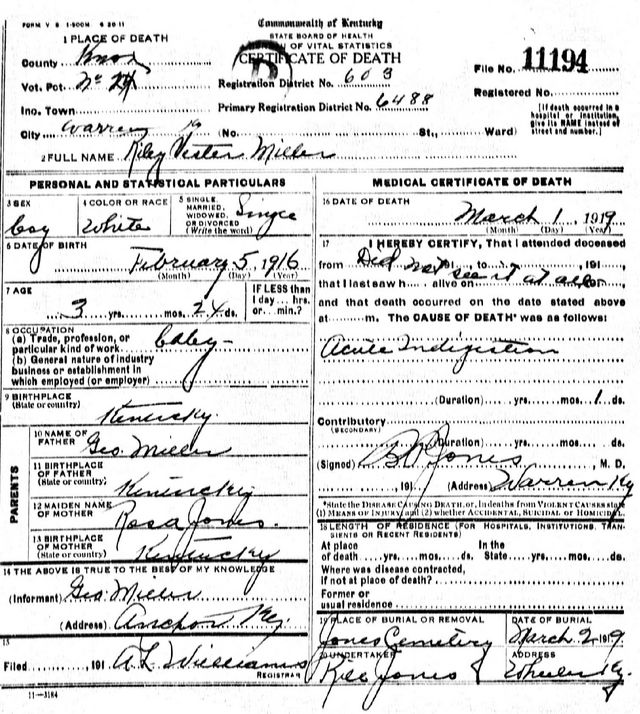 FORM V S 1-500M 6 20 11
Commonwealth of Kentucky
STATE BOARD OF HEALTH
BUREAU OF VITAL STATISTICS
CERTIFICATE OF DEATH
1 PLACE OF DEATH
County Knox
Vot. Pct. No
Inc. Town
City Warren Ky
Registration District No. 603
Primary Registration District No. 6488
(No. St., Ward)
File No. 11194
Registered No.
[If death occurred in a hospital or institution, give its NAME instead of street and number.]
2 FULL NAME Riley Vester Miller
PERSONAL AND STATISTICAL PARTICULARS
3 SEX boy
4 COLOR OR RACE White
5 SINGLE, MARRIED, WIDOWED, OR DIVORCED (Write the word) Single
6 DATE OF BIRTH
February 5, 1916
(Month) (Day) (Year)
7 AGE
3 yrs. mos. 24 ds.
IF LESS than 1 day... hrs. or... min.?
8 OCCUPATION
(a) Trade, profession, or particular kind of work baby
(b) General nature of industry business or establishment in which employed (or employer)
9 BIRTHPLACE
(State or country) Kentucky
PARENTS
10 NAME OF FATHER Geo. Miller
11 BIRTHPLACE OF FATHER (State or country) Kentucky
12 MAIDEN NAME OF MOTHER Rosa Jones.
13 BIRTHPLACE OF MOTHER (State or country) Kentucky
14 THE ABOVE IS TRUE TO THE BEST OF MY KNOWLEDGE
(Informant) Geo. Miller
(Address) Anchor Ky.
15
Filed 191 A L Williams
REGISTRAR
11-3184
MEDICAL CERTIFICATE OF DEATH
16 DATE OF DEATH
March 1, 1919
(Month) (Day) (Year)
17 I HEREBY CERTIFY, That I attended deceased
from Did not see it at all 191, to 191
that I last saw h alive on 191
and that death occurred on the date stated above
at m. The CAUSE OF DEATH* was as follows:
Acute Indigestion
(Duration) yrs. mos. 1 ds.
Contributory
(SECONDARY)
(Duration) yrs. mos. ds.
(Signed) Jones, M. D.
191 (Address) Warren Ky
*State the DISEASE CAUSING DEATH, or, in deaths from VIOLENT CAUSES state (1) MEANS OF INJURY; and (2) whether ACCIDENTAL, SUICIDAL or HOMICIDAL.
18 LENGTH OF RESIDENCE (FOR HOSPITALS, INSTITUTIONS, TRANSIENTS OR RECENT RESIDENTS)
At place of death yrs. mos. ds. In the State yrs. mos. ds.
Where was disease contracted, if not at place of death?
Former or usual residence
19 PLACE OF BURIAL OR REMOVAL Jones Cemetery
DATE OF BURIAL March 2, 1919
20 UNDERTAKER Jones
ADDRESS Wheeler Ky.